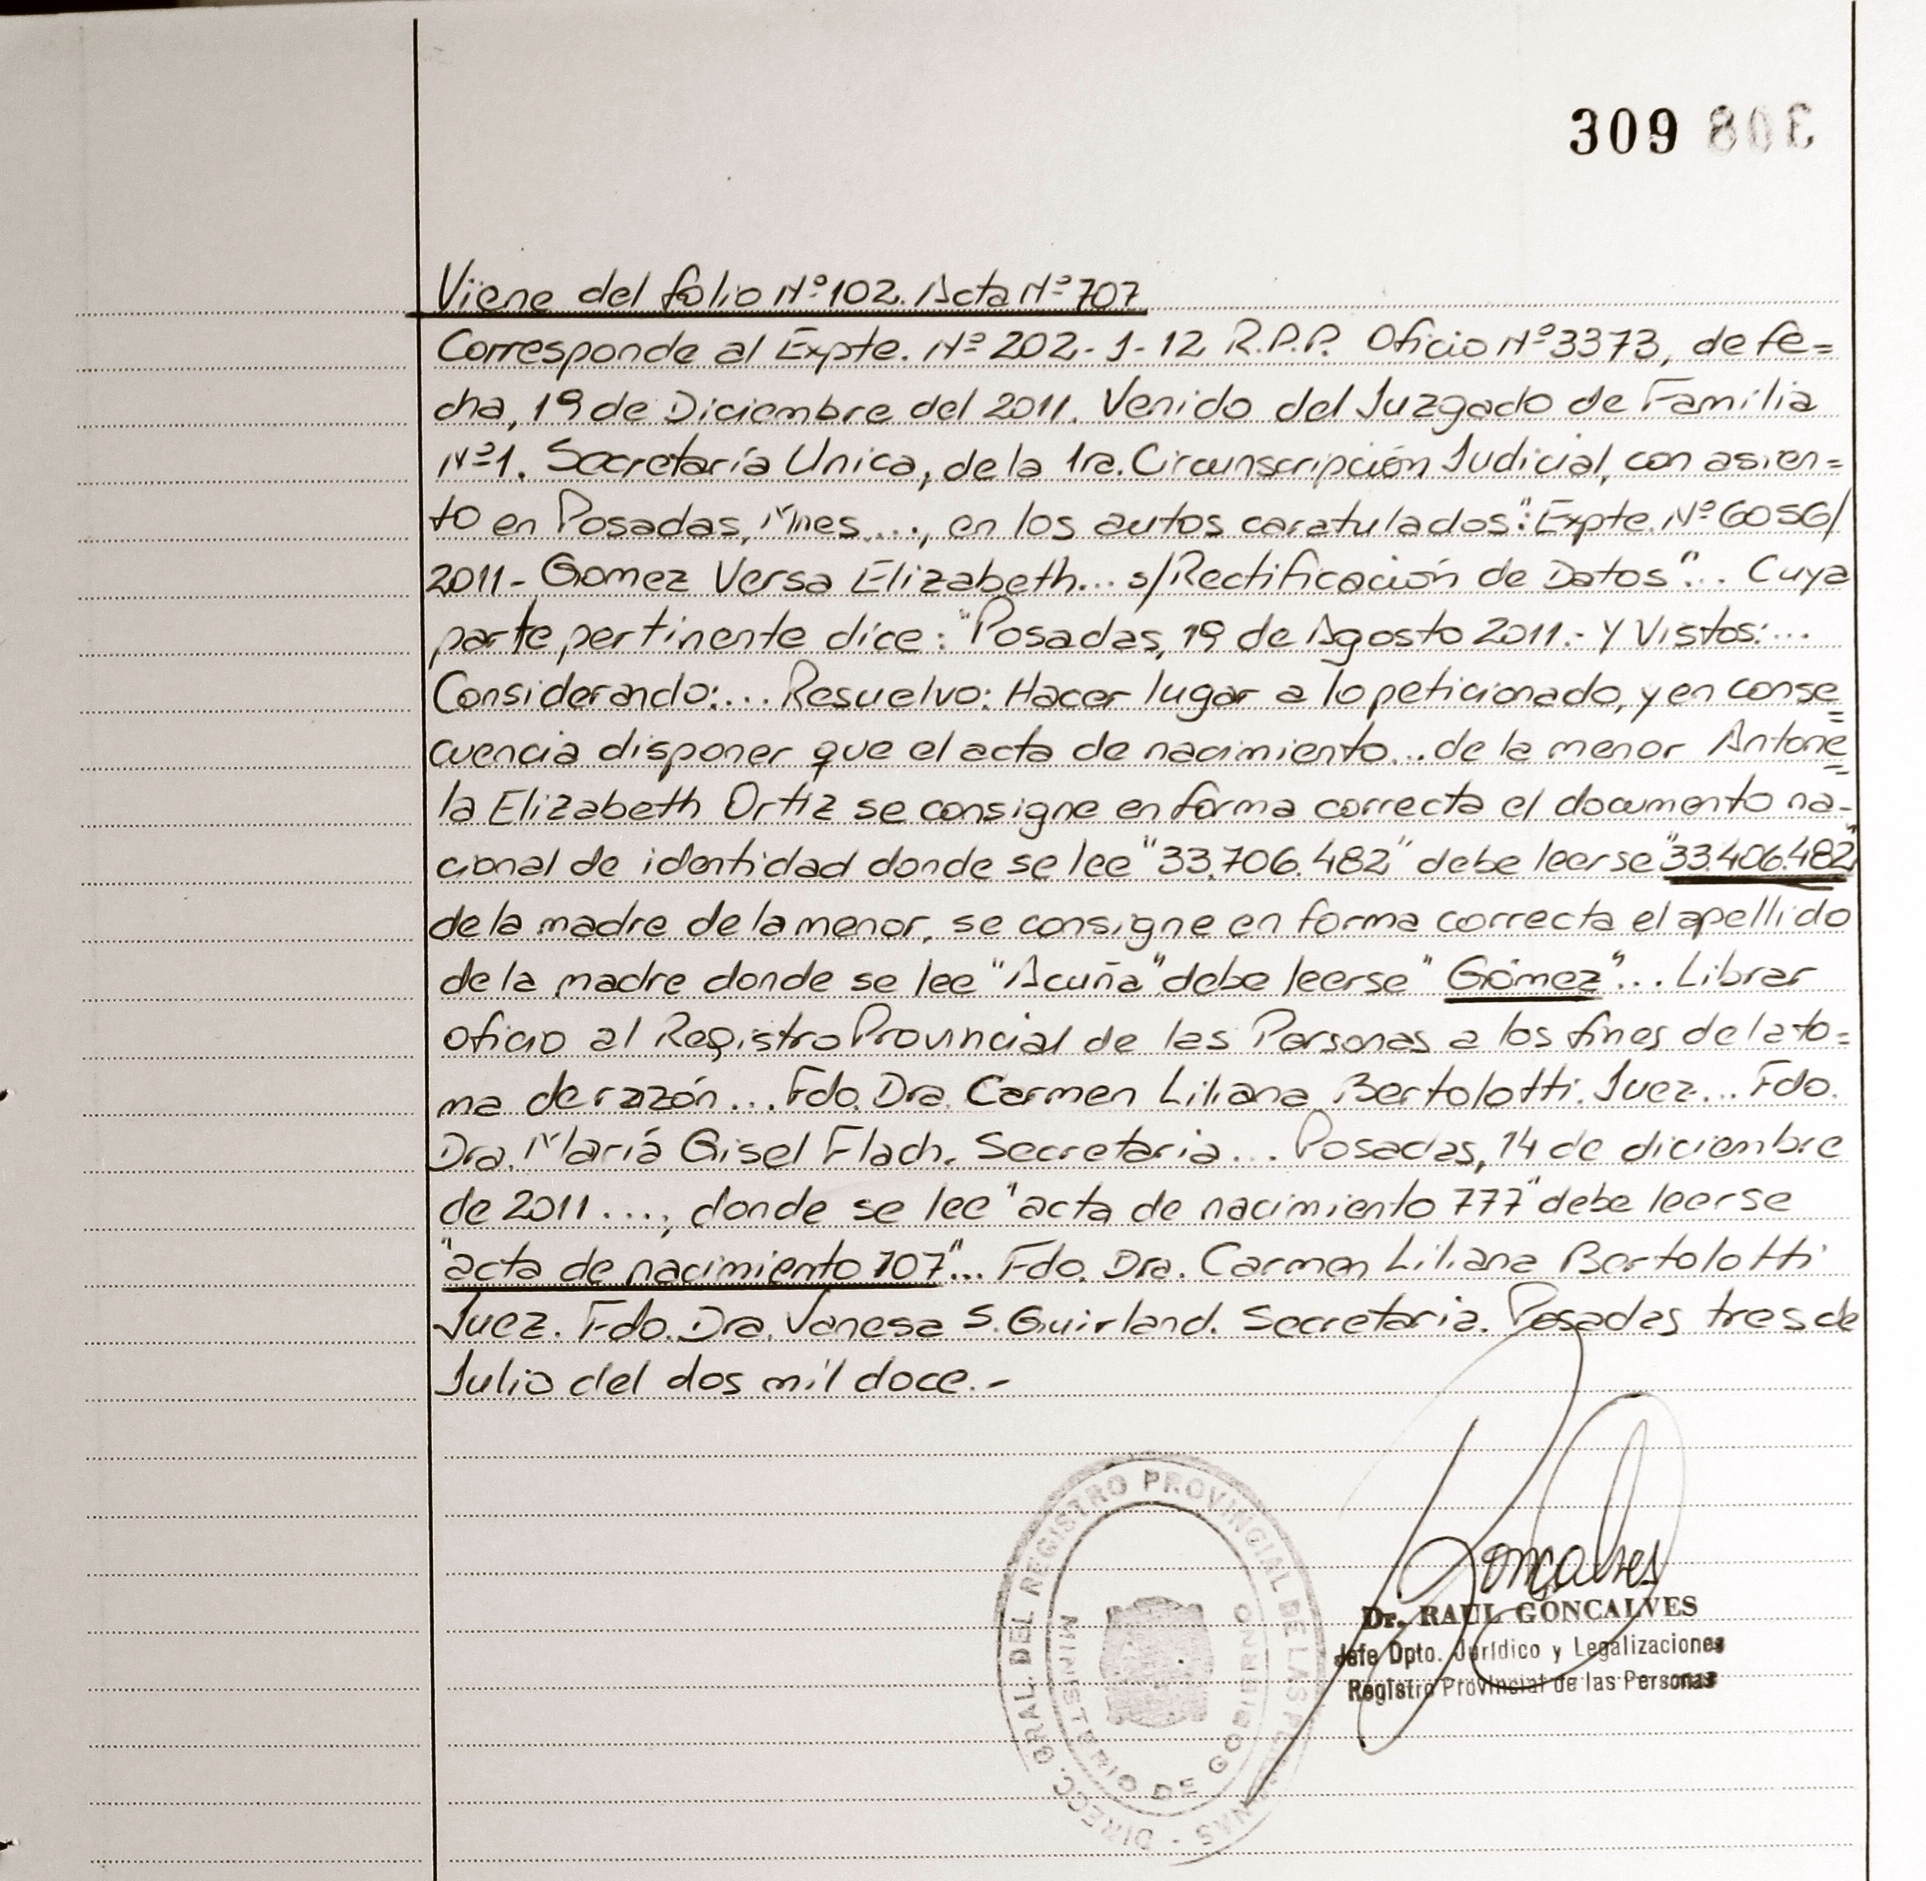 309 308
Viene del folio Nº 102. Acta Nº 707
Corresponde al Expte. Nº 202-1-12 R.P.P. Oficio Nº 3373, de fe=
cha, 19 de Diciembre del 2011. Venido del Juzgado de Familia
Nº 1. Secretaría Unica, de la 1ra. Circunscripción Judicial, con asien=
to en Posadas, Mnes..., en los autos caratulados: "Expte. Nº 6056/
2011- Gomez Versa Elizabeth... s/Rectificación de Datos"... Cuya
parte pertinente dice: "Posadas, 19 de Agosto 2011.- Y Vistos:...
Considerando:... Resuelvo: Hacer lugar a lo peticionado, y en conse=
cuencia disponer que el acta de nacimiento... de la menor Antone=
la Elizabeth Ortiz se consigne en forma correcta el documento na-
cional de identidad donde se lee "33.706.482" debe leerse "33.406.482"
de la madre de la menor, se consigne en forma correcta el apellido
de la madre donde se lee "Acuña" debe leerse "Gómez"... Librar
oficio al Registro Provincial de las Personas a los fines de la to=
ma de razón... Fdo. Dra. Carmen Liliana Bertolotti. Juez... Fdo.
Dra. María Gisel Flach. Secretaria... Posadas, 14 de diciembre
de 2011..., donde se lee "acta de nacimiento 777" debe leerse
"acta de nacimiento 707"... Fdo. Dra. Carmen Liliana Bertolotti
Juez. Fdo. Dra. Vanesa S. Guirland. Secretaria. Posadas tres de
Julio del dos mil doce.-
DIRECC. GRAL. DEL REGISTRO PROVINCIAL DE LAS PERSONAS -
MINISTERIO DE GOBIERNO
Goncalves
Dr. RAUL GONCALVES
Jefe Dpto. Jurídico y Legalizaciones
Registro Provincial de las Personas